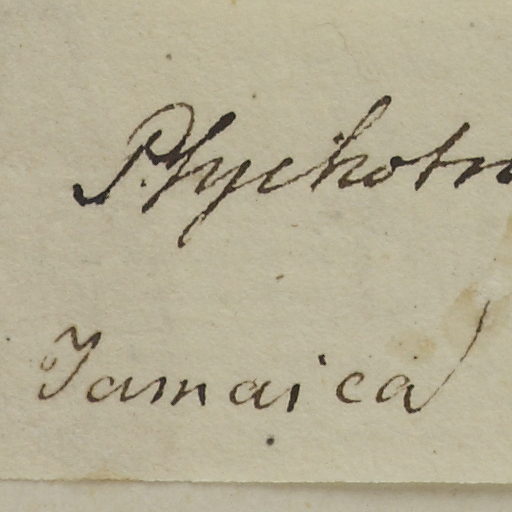 Psychotr
Jamaica